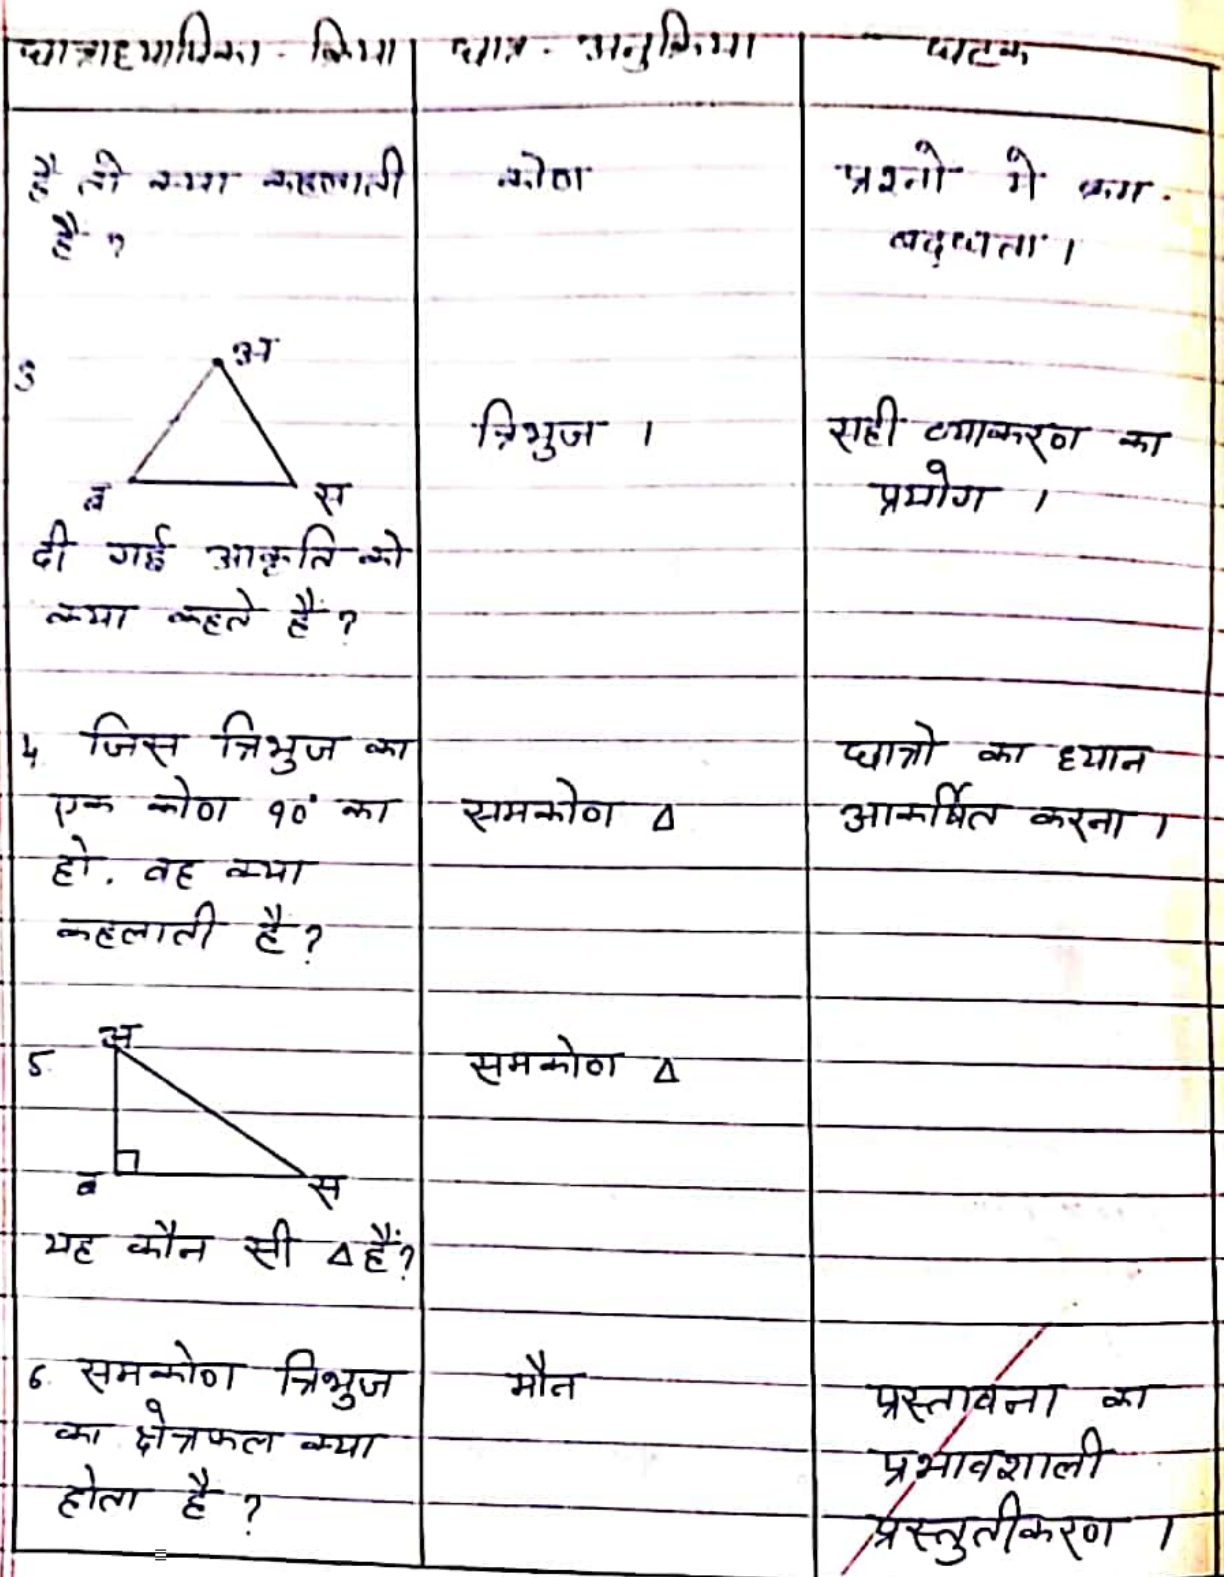 छात्राध्यापिका - क्रिया
छात्र - अनुक्रिया
घटक
है तो क्या कहलाती
है ?
कोण
प्रश्नो मे क्रम -
बद्धता ।
3
अ
ब
स
दी गई आकृति को
क्या कहते हैं ?
त्रिभुज ।
सही व्याकरण का
प्रयोग ।
4. जिस त्रिभुज का
एक कोण 90° का
हो. वह क्या
कहलाती है ?
समकोण Δ
छात्रो का ध्यान
आकर्षित करना ।
5.
अ
ब
स
यह कौन सी Δ हैं?
समकोण Δ
6. समकोण त्रिभुज
का क्षेत्रफल क्या
होता है ?
मौन
प्रस्तावना का
प्रभावशाली
प्रस्तुतीकरण ।